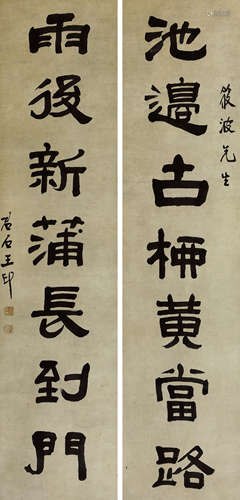 筱波先生
池邊古桺黃當路
雨後新蒲長到門
石王印